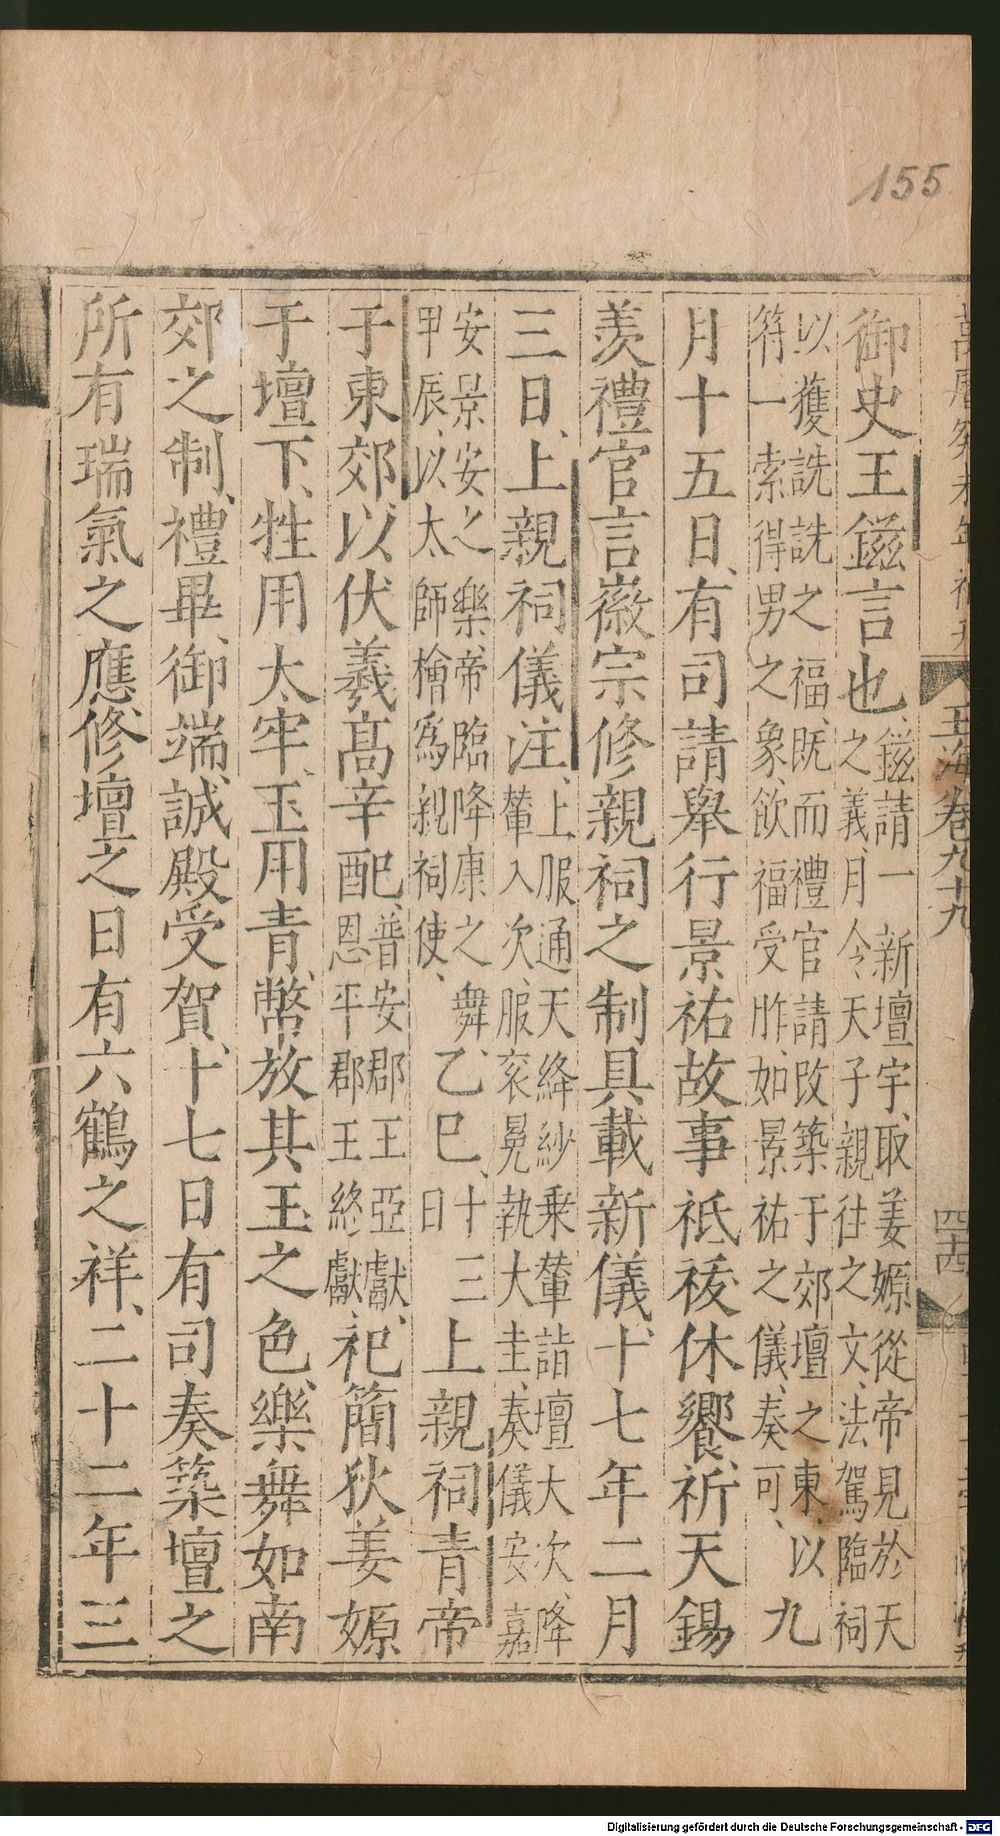 155
玉海卷九十九
四十四
御史王鎡言也、鎡請一新壇宇、取姜嫄從帝見於天
之義、月令天子親往之文、法駕臨祠
以獲詵詵之福、既而禮官請改築于郊壇之東、以
符一索得男之象、飲福受胙、如景祐之儀、奏可、九
月十五日、有司請舉行景祐故事祗祓休饗、祈天錫
羨禮官言徽宗修親祠之制具載新儀、十七年二月
三日、上親祠儀注、上服通天絳紗乗輦詣壇大次、降
輦入次、服衮冕執大圭、奏儀安嘉
安景安之樂、帝臨降康之舞、
甲辰、以太師檜爲親祠使、乙巳、十三日上親祠青帝
于東郊、以伏羲高辛配、普安郡王亞獻、
恩平郡王終獻、祀簡狄姜嫄
于壇下、牲用太牢、玉用青、幣放其玉之色、樂舞如南
郊之制、禮畢、御端誠殿受賀、十七日有司奏築壇之
所有瑞氣之應、修壇之日有六鶴之祥、二十二年三
Digitalisierung gefördert durch die Deutsche Forschungsgemeinschaft - DFG